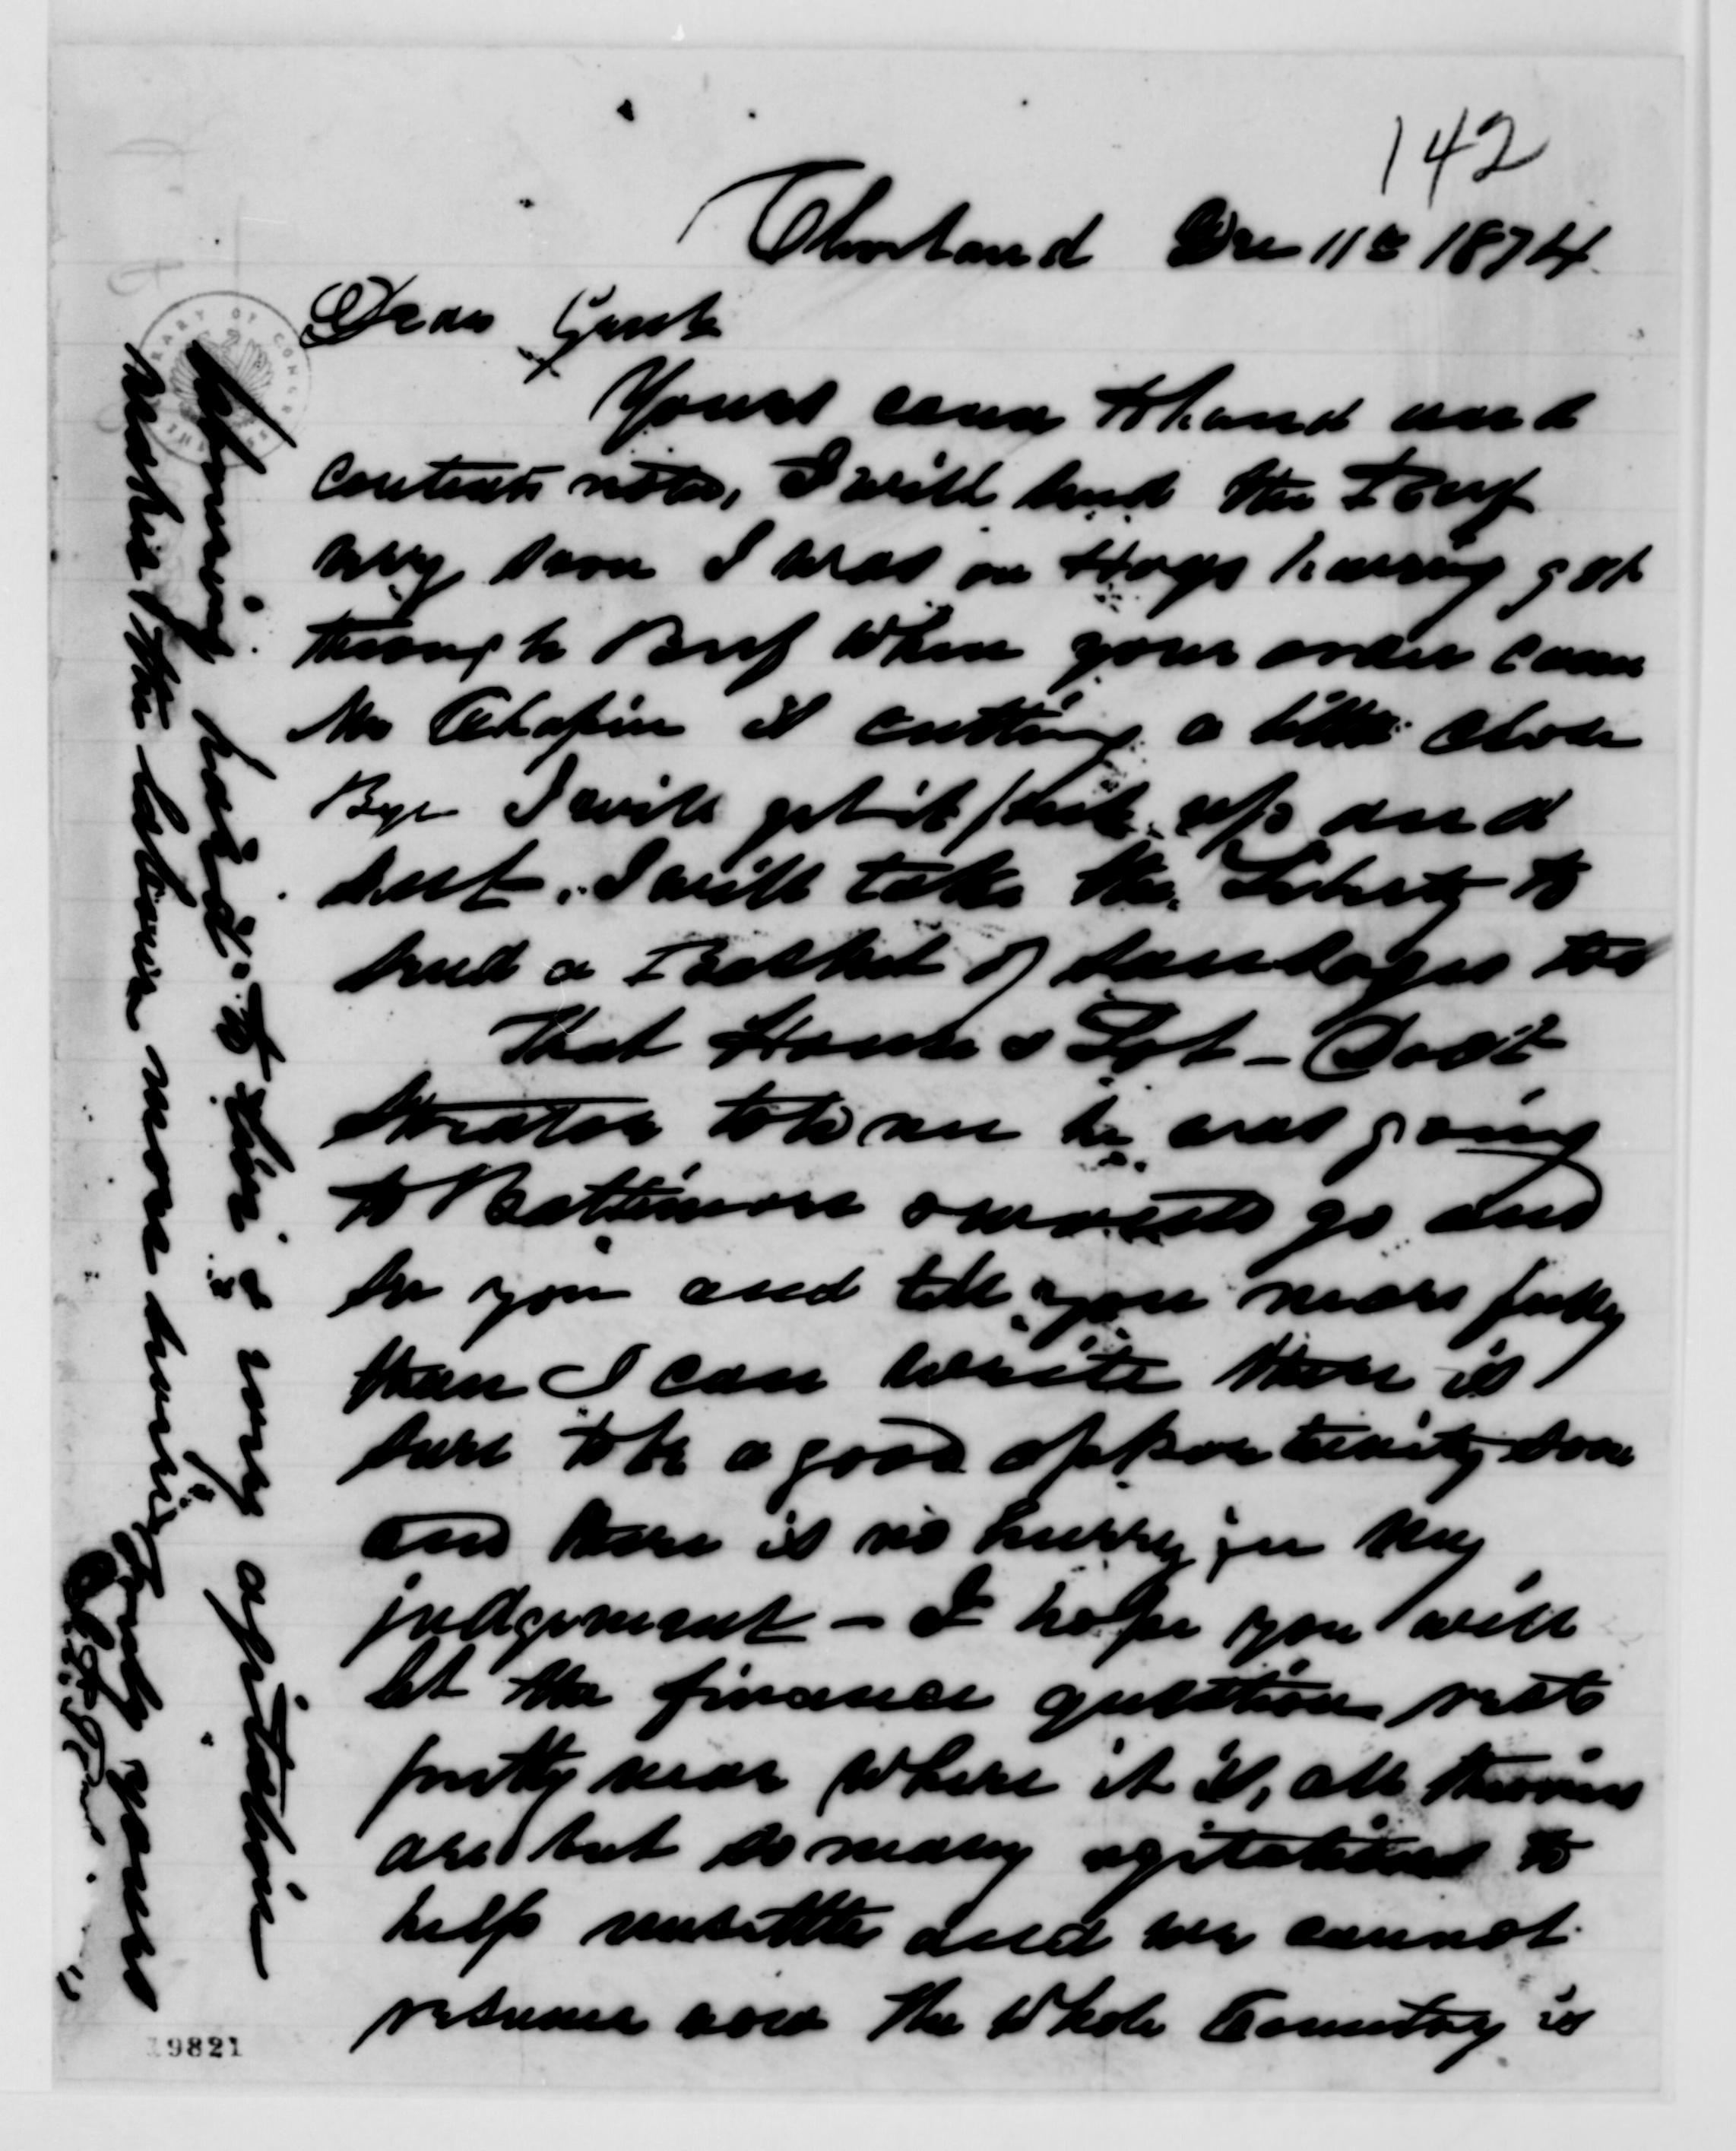 142
Cleveland Dec 11th 1874
Dear Genl
Yours came to hand and
contents noted, I will send the Beef
very soon I was on Hogs having got
through Beef when your order came
Mr Chapin is cutting a little close
Bye I will get it put up and
sent. I will take the Liberty to
send a Basket of sausages too
That House & Lot — Doct
Streator told me he was going
to Baltimore & would go and
see you and tell you more fully
than I can write there is
sure to be a good opportunity soon
and there is no hurry in my
judgement — I hope you will
let the finance question rest
pretty near where it is, all theories
are but so many agitations to
help unsettle and we cannot
resume now the whole Country is
working hard to & every agitation
makes the labour more
Truly yours
LIBRARY OF CONGRESS
19821